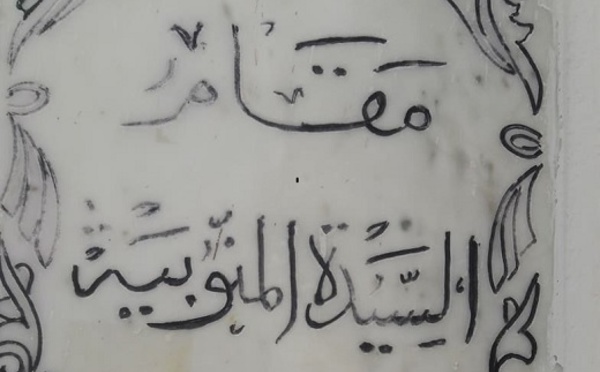 مَقَامُ
السَّيِّدَةِ المنّوبيّة